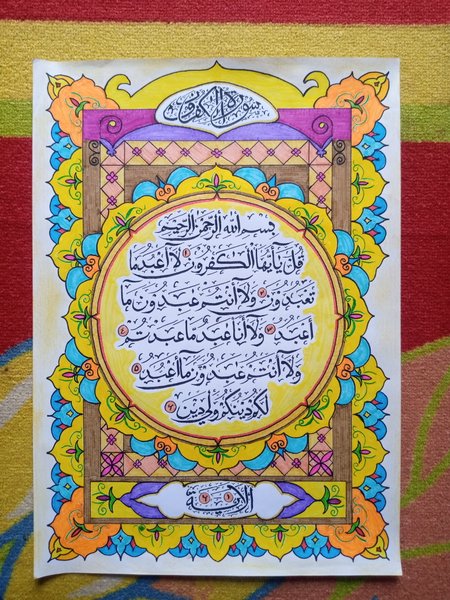 سُورَةُ الْكٰفِرُونَ
بِسْمِ اللهِ الرَّحْمٰنِ الرَّحِيْمِ
قُلْ يٰٓأَيُّهَا الْكٰفِرُوْنَ ١ لَآ أَعْبُدُ مَا
تَعْبُدُوْنَ ٢ وَلَآ أَنْتُمْ عٰبِدُوْنَ مَآ
أَعْبُدُ ٣ وَلَآ أَنَا۠ عَابِدٌ مَّا عَبَدْتُّمْ ٤
وَلَآ أَنْتُمْ عٰبِدُوْنَ مَآ أَعْبُدُ ٥
لَكُمْ دِيْنُكُمْ وَلِيَ دِيْنِ ٦
الآية ١ ٦